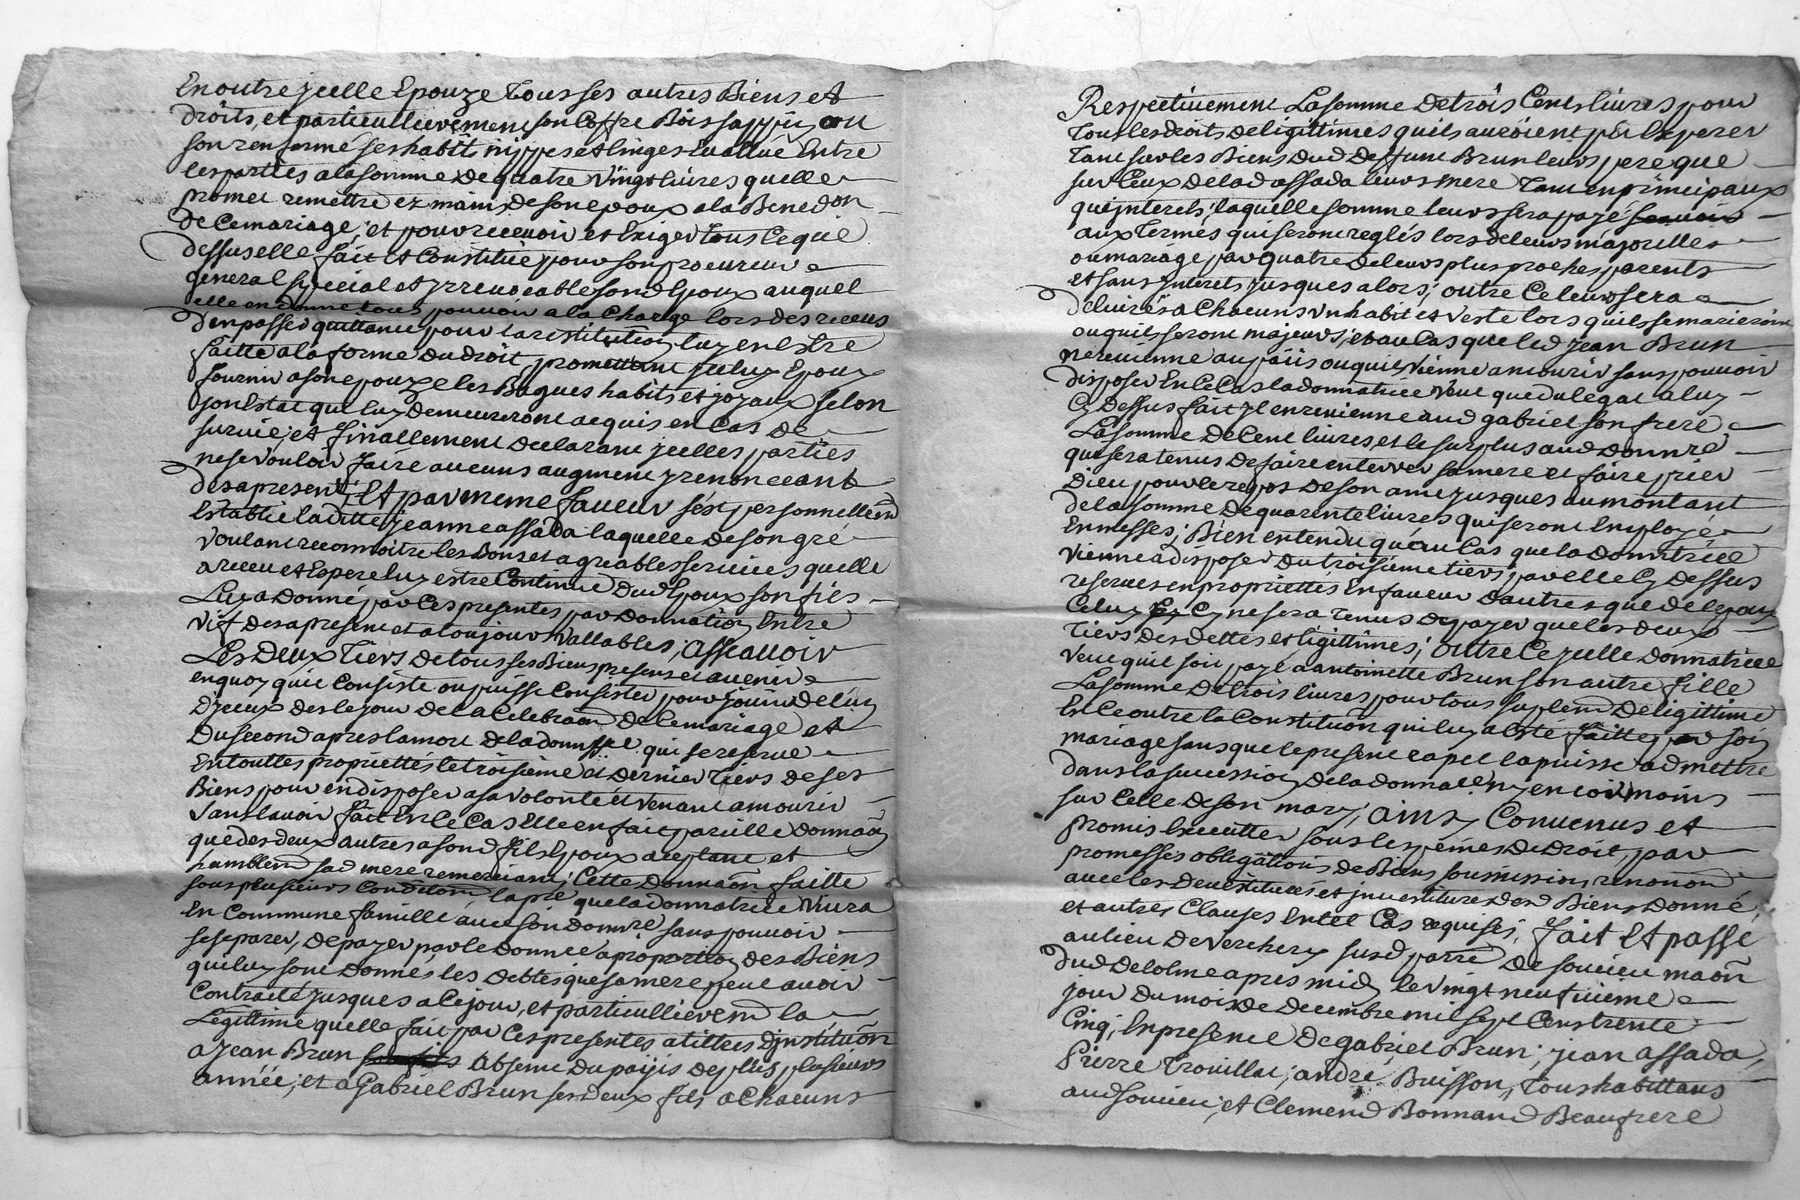 En outre jcelle Epouze tous ses autres Biens et
droits, et particullierement son Coffre Bois sappin ou
son renfermé ses habits nippes et linges Evallué Entre
les parties a la somme de quatre vingt livres quelle
promet remettre ez mains de son epoux a la Benedon
de Ce mariage; et pour recevoir et Exiger tous Ce que
dessus elle fait et Constitue pour son procureur
general special et jrrevocable sond Epoux auquel
elle en donne tout pouvoir a la Charge lors des receus
den passer quittance pour la restitution luy en estre
faitte a la forme du droit, promettant jceluy Epoux
fournir a son epouze les Bagues habits et joyaux selon
son Estat qui luy demeureront acquis en Cas de
survie; et finallement declarant jcelles parties
ne se vouloir faire aucuns augment y renonceant
des apresent; Et par meme faveur s'est personnellemd
Establie laditte jeanne assada laquelle de son gré
voulant reconnoitre les Bons et agreables services quelle
a receu et Espere luy estre Continué dud Epoux son fils
Luy a donné par Ces presentes par donnation Entre
vif des apresent et a toujours vallables; assavoir
Les deux Tiers de tous ses Biens presens et avenir
en quoy quils Consiste ou puisse Consister pour jouir de l'un
d'jceux des le jour de la Celebraon de Ce mariage et
du second apres la mort de la donnsse qui se reserve
En touttes proprietes le troisieme et dernier tiers de ses
Biens pour en disposer a sa volonté et venant a mourir
sans l'avoir fait En Ce Cas Elle en fait pareille donnaon
que des deux autres a sond fils Epoux aceptant et
humblemd sad mere remerciant; Cette donnaon faitte
sous plusieurs Conditions la pre que la donnatrice vivra
En Commune famille avec son donnre sans pouvoir
se separer, de payer par le donnre a proportion des Biens
qui luy sont donnés les debtes que sa mere peut avoir
Contracté jusques a Ce jour, et particullieremd la
Legittime quelle fait par Ces presentes a tittres d'jnstitution
a jean Brun absent du païs depuis plusieurs
année; et a Gabriel Brun ses deux fils a Chacuns
Respectivement La somme de trois Cens livres pour
tous les droits de ligittimes quils auroient pû Esperer
tant sur les Biens dud deffunt Brun leurs pere que
sur Ceux de lad assada leurs mere tant en principaux
qu'jnterets; laquelle somme leurs sera payé
aux Termes qui seront reglés lors de leurs majorittes
ou mariage par quatre de leurs plus proches parents
et sans jnterets jusques alors; outre Ce leurs sera
delivrés a Chacuns un habit et veste lors quils se marieront
ou quils seront majeurs; et au Cas que led jean Brun
ne revienne au païs ou quil vienne a mourir sans pouvoir
disposer En Ce Cas la donnatrice veut que du legat a luy
Cy dessus fait jl en revienne aud gabriel son frere
La somme de Cent livres et le surplus aud donnre
qui sera tenus de faire enterrer sa mere et faire prier
dieu pour le repos de son ame jusques au montant
de la somme de quarente livres qui seront Employé
En messes; Bien entendu qu'au Cas que la donnatrice
vienne a disposer du troisieme tiers par elle Cy dessus
reservés en proprietés En faveur dautres que de lepoux
Celuy Cy ne sera tenus de payer que les deux
tiers des dettes et ligittimes; outre Ce jcelle donnatrice
veut quil soit payé a antoinette Brun son autre fille
La somme de trois livres pour tous suplemd de ligittime
En Ce outre la Constitution qui luy a Esté faitte par son
mariage sans que le present rapel la puisse admettre
dans la succession de la donnatce n'y encor moins
sur Celle de son mary; ainsy Convenus et
promis Executter sous les peines de Droit, par
promesses obligations de Biens soumissions renonon
avec les devestitures et jnvestitures desd Biens donné,
et autres Clauses En tel Cas requises; fait Et passé
au lieu de vercherx susd parre de soucieu maon
dud delolme apres midy le vingt neufvieme
jour du mois de decembre mil sept Cens trente
Cinq; En presence de gabriel Brun; jean assada,
Pierre trouillat; andré Buisson, tous habittans
aud soucieu; et Clemend Bonnand Beaufrere